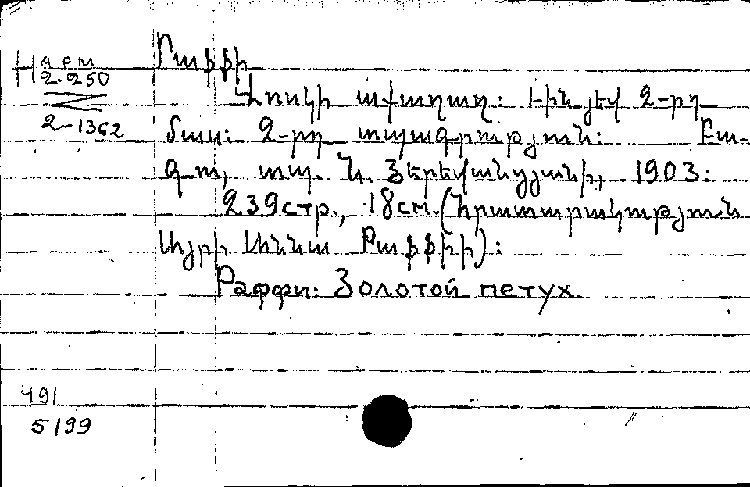 Н а е м
2-250
2-1362
Րաֆֆի
Ոսկի աքաղաղ: 1-ին եվ 2-րդ
մաս: 2-րդ տպագրություն: Բա-
գու, տպ. Ն. Երեվանցյանի, 1903:
239стр., 18см. (Հրատարակություն
Այրի Աննա Րաֆֆիի):
Раффи: Золотой петух
491
5199